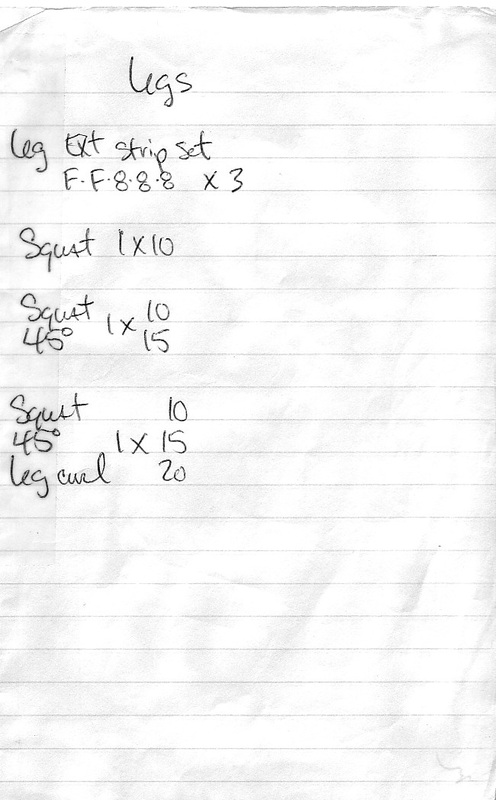 Legs
Leg Ext strip set
F.F.8.8.8 x 3
Squat 1x10
Squat 1x 10
45° 15
Squat 10
45° 1x 15
leg curl 20